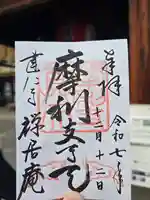 奉拝
令和七年
十二月十二日
摩利支天
建仁寺
禅居庵